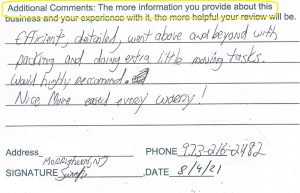 Additional Comments: The more information you provide about this
business and your experience with it, the more helpful your review will be.
Efficient, detailed, went above and beyond with
packing and doing extra little moving tasks.
Would highly recommend.
Nice Move every
Address Morristown, NJ PHONE 973-216-2482
SIGNATURE DATE 8/4/21